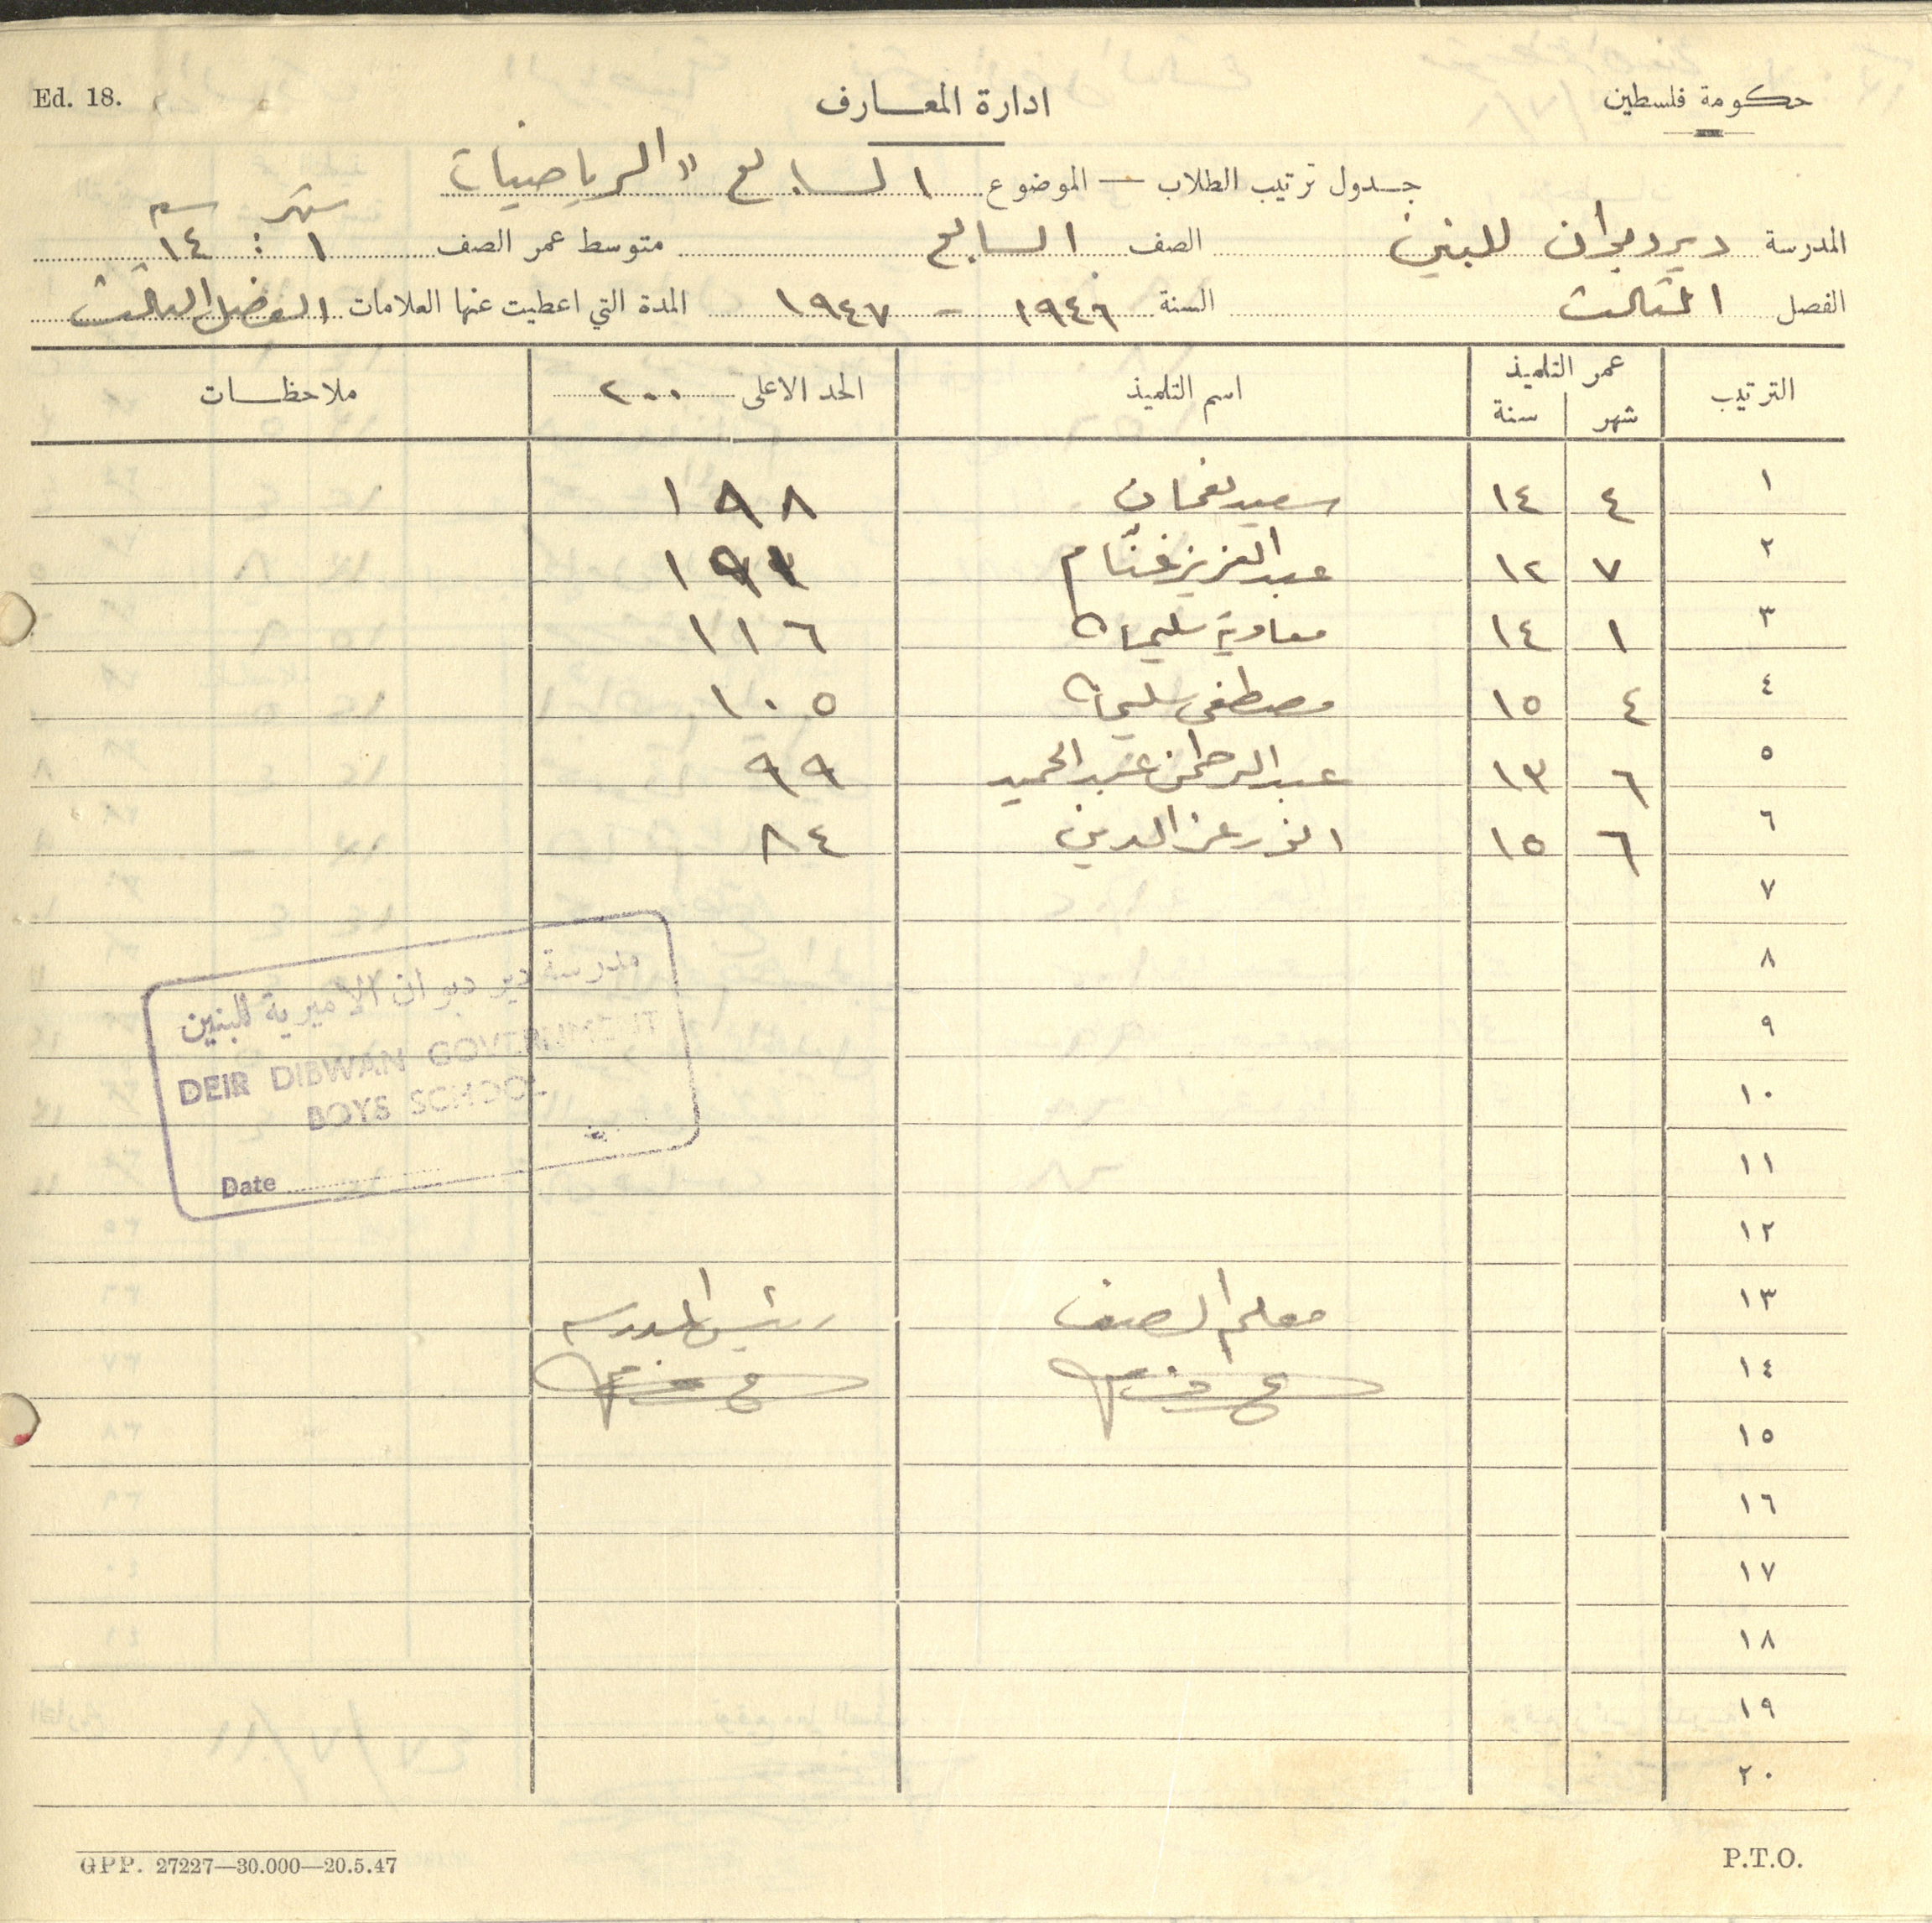 Ed. 18.
ادارة المعارف
حكومة فلسطين
جدول ترتيب الطلاب — الموضوع السابع "الرياضيات
المدرسة دير دبوان للبنين الصف السابع متوسط عمر الصف ١ شهر : ١٤ سنه
الفصل الثالث السنة ١٩٤٦ - ١٩٤٧ المدة التي اعطيت عنها العلامات الفصل الثالث
الترتيب عمر التلميذ اسم التلميذ الحد الاعلى ٢٠٠ ملاحظات
شهر سنة
١ ٤ ١٤ سعيد نعمان ١٩٨
٢ ٧ ١٢ عبد العزيز غنّام
٣ ١ ١٤ معاوية سليمان ١١٦
٤ ٤ ١٥ مصطفى سليمان ١٠٥
٥ ٦ ١٣ عبد الرحمن عبد الحميد ٩٩
٦ ٦ ١٥ انور عز الدين ٨٤
٧
٨
مدرسة دير دبوان الاميرية للبنين
٩
DEIR DIBWAN GOVERNMENT
BOYS SCHOOL
١٠
١١
Date
١٢
١٣ معلم الصف رئيس المدرسه
١٤
١٥
١٦
١٧
١٨
١٩
٢٠
GPP. 27227—30.000—20.5.47
P.T.O.